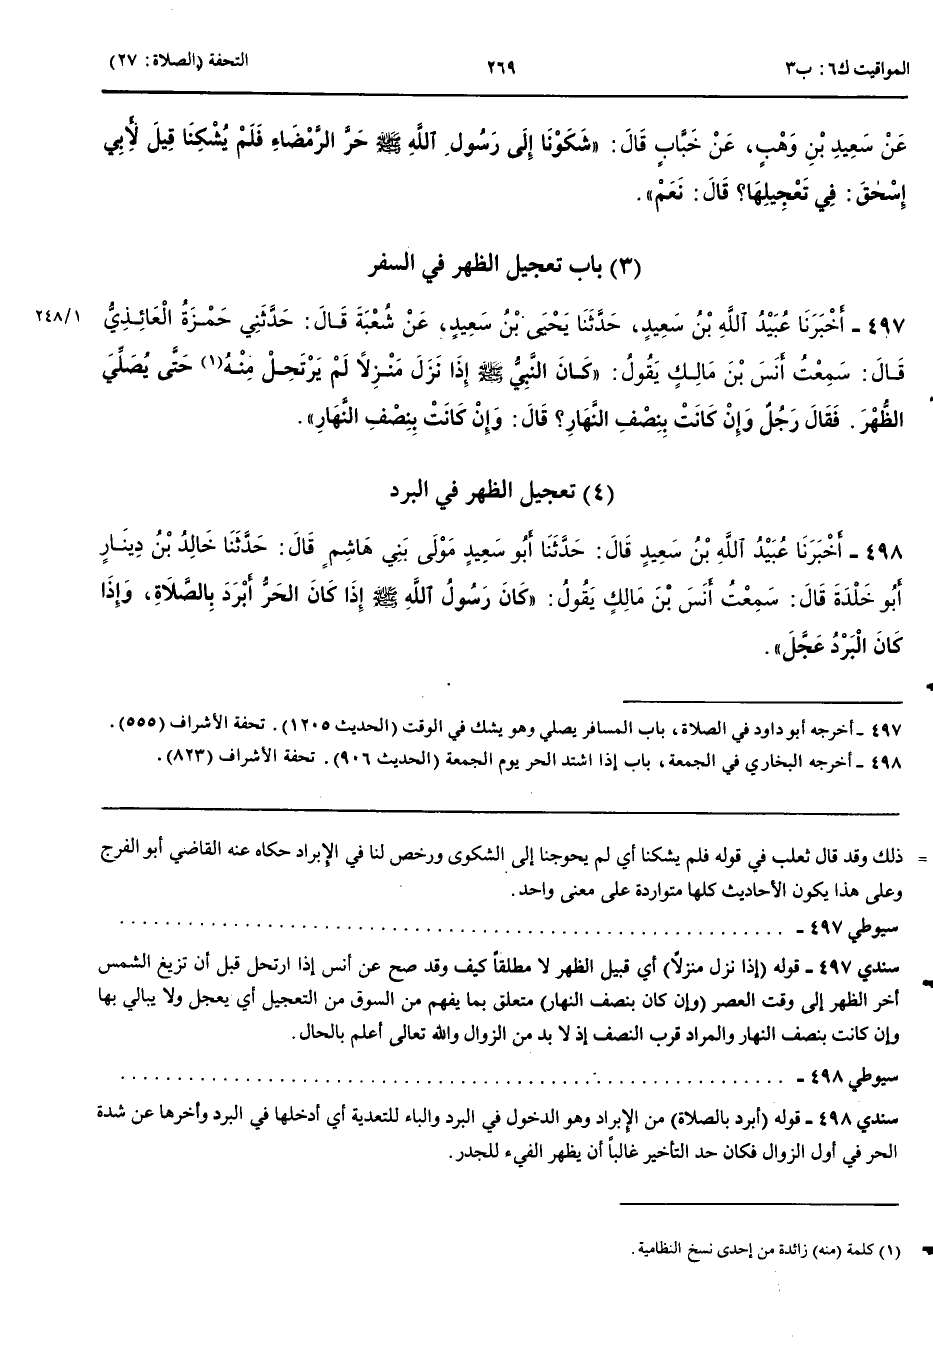 المواقيت ك٦: ب٣
٢٦٩
التحفة (الصلاة: ٢٧)
عَنْ سَعِيدِ بْنِ وَهْبٍ، عَنْ خَبَّابٍ قَالَ: «شَكَوْنَا إِلَى رَسُولِ اللَّهِ ﷺ حَرَّ الرَّمْضَاءِ فَلَمْ يُشْكِنَا قِيلَ لِأَبِي
إِسْحٰقَ: فِي تَعْجِيلِهَا؟ قَالَ: نَعَمْ».
(٣) باب تعجيل الظهر في السفر
٤٩٧ - أَخْبَرَنَا عُبَيْدُ اللَّهِ بْنُ سَعِيدٍ، حَدَّثَنَا يَحْيَى بْنُ سَعِيدٍ، عَنْ شُعْبَةَ قَالَ: حَدَّثَنِي حَمْزَةُ الْعَائِذِيُّ
٢٤٨/١
قَالَ: سَمِعْتُ أَنَسَ بْنَ مَالِكٍ يَقُولُ: «كَانَ النَّبِيُّ ﷺ إِذَا نَزَلَ مَنْزِلاً لَمْ يَرْتَحِلْ مِنْهُ(١) حَتَّى يُصَلِّيَ
الظُّهْرَ. فَقَالَ رَجُلٌ وَإِنْ كَانَتْ بِنِصْفِ النَّهَارِ؟ قَالَ: وَإِنْ كَانَتْ بِنِصْفِ النَّهَارِ».
(٤) تعجيل الظهر في البرد
٤٩٨ - أَخْبَرَنَا عُبَيْدُ اللَّهِ بْنُ سَعِيدٍ قَالَ: حَدَّثَنَا أَبُو سَعِيدٍ مَوْلَى بَنِي هَاشِمٍ قَالَ: حَدَّثَنَا خَالِدُ بْنُ دِينَارٍ
أَبُو خَلْدَةَ قَالَ: سَمِعْتُ أَنَسَ بْنَ مَالِكٍ يَقُولُ: «كَانَ رَسُولُ اللَّهِ ﷺ إِذَا كَانَ الْحَرُّ أَبْرَدَ بِالصَّلَاةِ، وَإِذَا
كَانَ الْبَرْدُ عَجَّلَ».
٤٩٧ - أخرجه أبو داود في الصلاة، باب المسافر يصلي وهو يشك في الوقت (الحديث ١٢٠٥). تحفة الأشراف (٥٥٥).
٤٩٨ - أخرجه البخاري في الجمعة، باب إذا اشتد الحر يوم الجمعة (الحديث ٩٠٦). تحفة الأشراف (٨٢٣).
= ذلك وقد قال ثعلب في قوله فلم يشكنا أي لم يحوجنا إلى الشكوى ورخص لنا في الإبراد حكاه عنه القاضي أبو الفرج
وعلى هذا يكون الأحاديث كلها متواردة على معنى واحد.
سيوطي ٤٩٧ - ............................................................
سندي ٤٩٧ - قوله (إذا نزل منزلاً) أي قبيل الظهر لا مطلقاً كيف وقد صح عن أنس إذا ارتحل قبل أن تزيغ الشمس
أخر الظهر إلى وقت العصر (وإن كان بنصف النهار) متعلق بما يفهم من السوق من التعجيل أي يعجل ولا يبالي بها
وإن كانت بنصف النهار والمراد قرب النصف إذ لا بد من الزوال والله تعالى أعلم بالحال.
سيوطي ٤٩٨ - ............................................................
سندي ٤٩٨ - قوله (أبرد بالصلاة) من الإبراد وهو الدخول في البرد والباء للتعدية أي أدخلها في البرد وأخرها عن شدة
الحر في أول الزوال فكان حد التأخير غالباً أن يظهر الفيء للجدر.
(١) كلمة (منه) زائدة من إحدى نسخ النظامية.